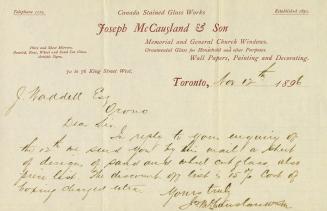 Telephone 1275.
Canada Stained Glass Works
Established 1850.
Joseph McCausland & Son
Memorial and General Church Windows.
Ornamental Glass for Household and other Purposes.
Wall Papers, Painting and Decorating.
76 King Street West.
Toronto, Nov 12th 1896
J. Waddell Esq
Orono
Dear Sir
In reply to your enquiry of
the 12th we send you by this mail a sheet
of designs of sand and wheel cut glass also
price list. The discount off list is 15% Cost of
boxing charged extra
Yours truly
Jos McCausland & Son